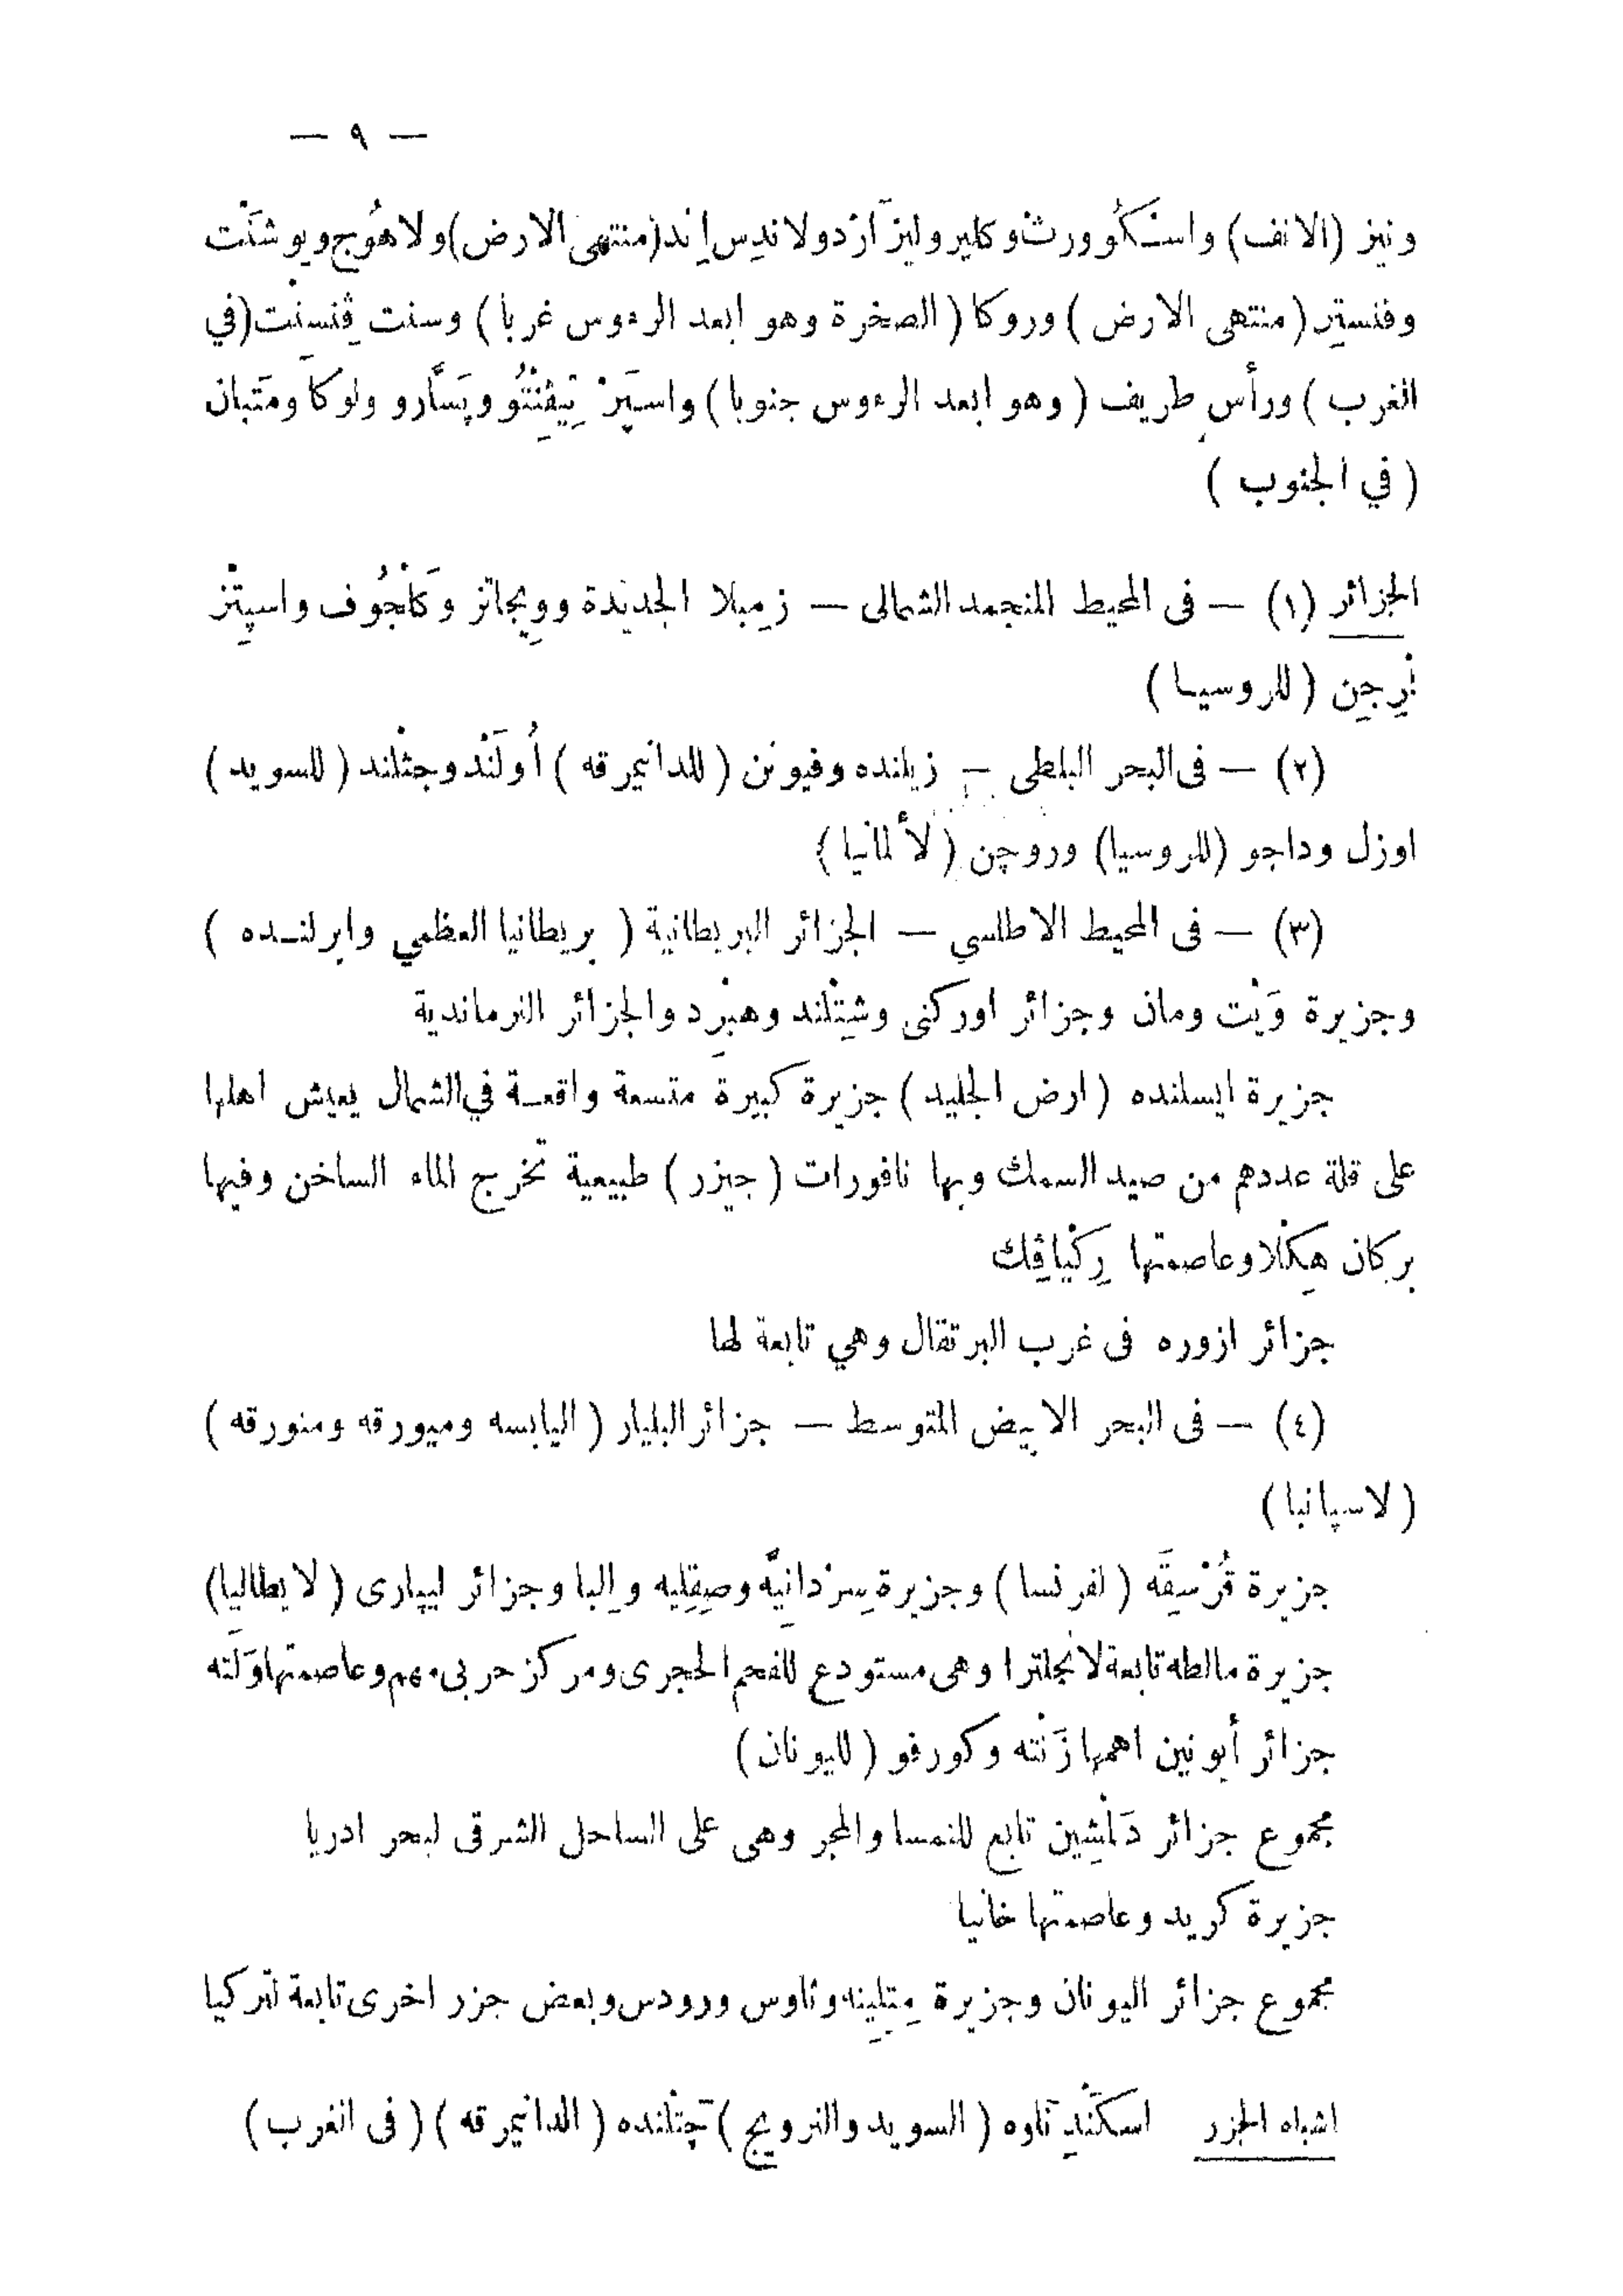 — ٩ —
ونيز (الانف) واسنكُوورث وكلير وليزَآرْد ولاندِس اِند (منتهى الارض) ولاهُوج وبوشنَت
وفنستِر (منتهى الارض) وروكا (الصخرة وهو ابعد الرءوس غربا) وسنت ڤِنسِنْت (في
الغرب) ورأس طريف (وهو ابعد الرءوس جنوبا) واسپَرْتِيڤِنْتُو وپَسَّارو ولوكا ومَتَبان
(في الجنوب)
الجزائر (١) — فى المحيط المنجمد الشمالى — زمبلا الجديدة وويجاتز وكَانْجُوف واسپِتْز
بْرِجِن (للروسيا)
(٢) — فى البحر البلطى — زيلنده وفيونن (للدانيمرقه) أُولَنْد وجتْلند (للسويد)
اوزل وداجو (للروسيا) وروجن (لألمانيا)
(٣) — فى المحيط الاطلسي — الجزائر البريطانية (بريطانيا العظمي وايرلنـده)
وجزيرة وَيْت ومان وجزائر اوركنى وشِتْلند وهبْرِد والجزائر النرماندية
جزيرة ايسلنده (ارض الجليد) جزيرة كبيرة متسعة واقعـة في الشمال يعيش اهلها
على قلة عددهم من صيد السمك وبها نافورات (جيزر) طبيعية تخرج الماء الساخن وفيها
بركان هِكْلا وعاصمتها رِكْياڤِك
جزائر ازوره فى غرب البرتقال وهي تابعة لها
(٤) — فى البحر الابيض المتوسط — جزائر البليار (اليابسه وميورقه ومنورقه)
(لاسپانيا)
جزيرة قُرْسِقَه (لفرنسا) وجزيرة سِرْدانِيَّه وصِقِلِيه وإلبا وجزائر ليپارى (لايطاليا)
جزيرة مالطه تابعة لانجلترا وهى مستودع للفحم الحجرى ومركز حربى مهم وعاصمتها وَلَته
جزائر أيونين اهمها زَنْته وكورفو (لليونان)
مجموع جزائر دَلْشِين تابع للنمسا والمجر وهى على الساحل الشرقى لبحر ادريا
جزيرة كريد وعاصمتها خانيا
مجموع جزائر اليونان وجزيرة مِتِلِينه وثاوس ورودس وبعض جزر اخرى تابعة لتركيا
اشباه الجزر اسكَنْدِناوه (السويد والنرويج) چَتْلنده (الدانيمرقه) (فى الغرب)